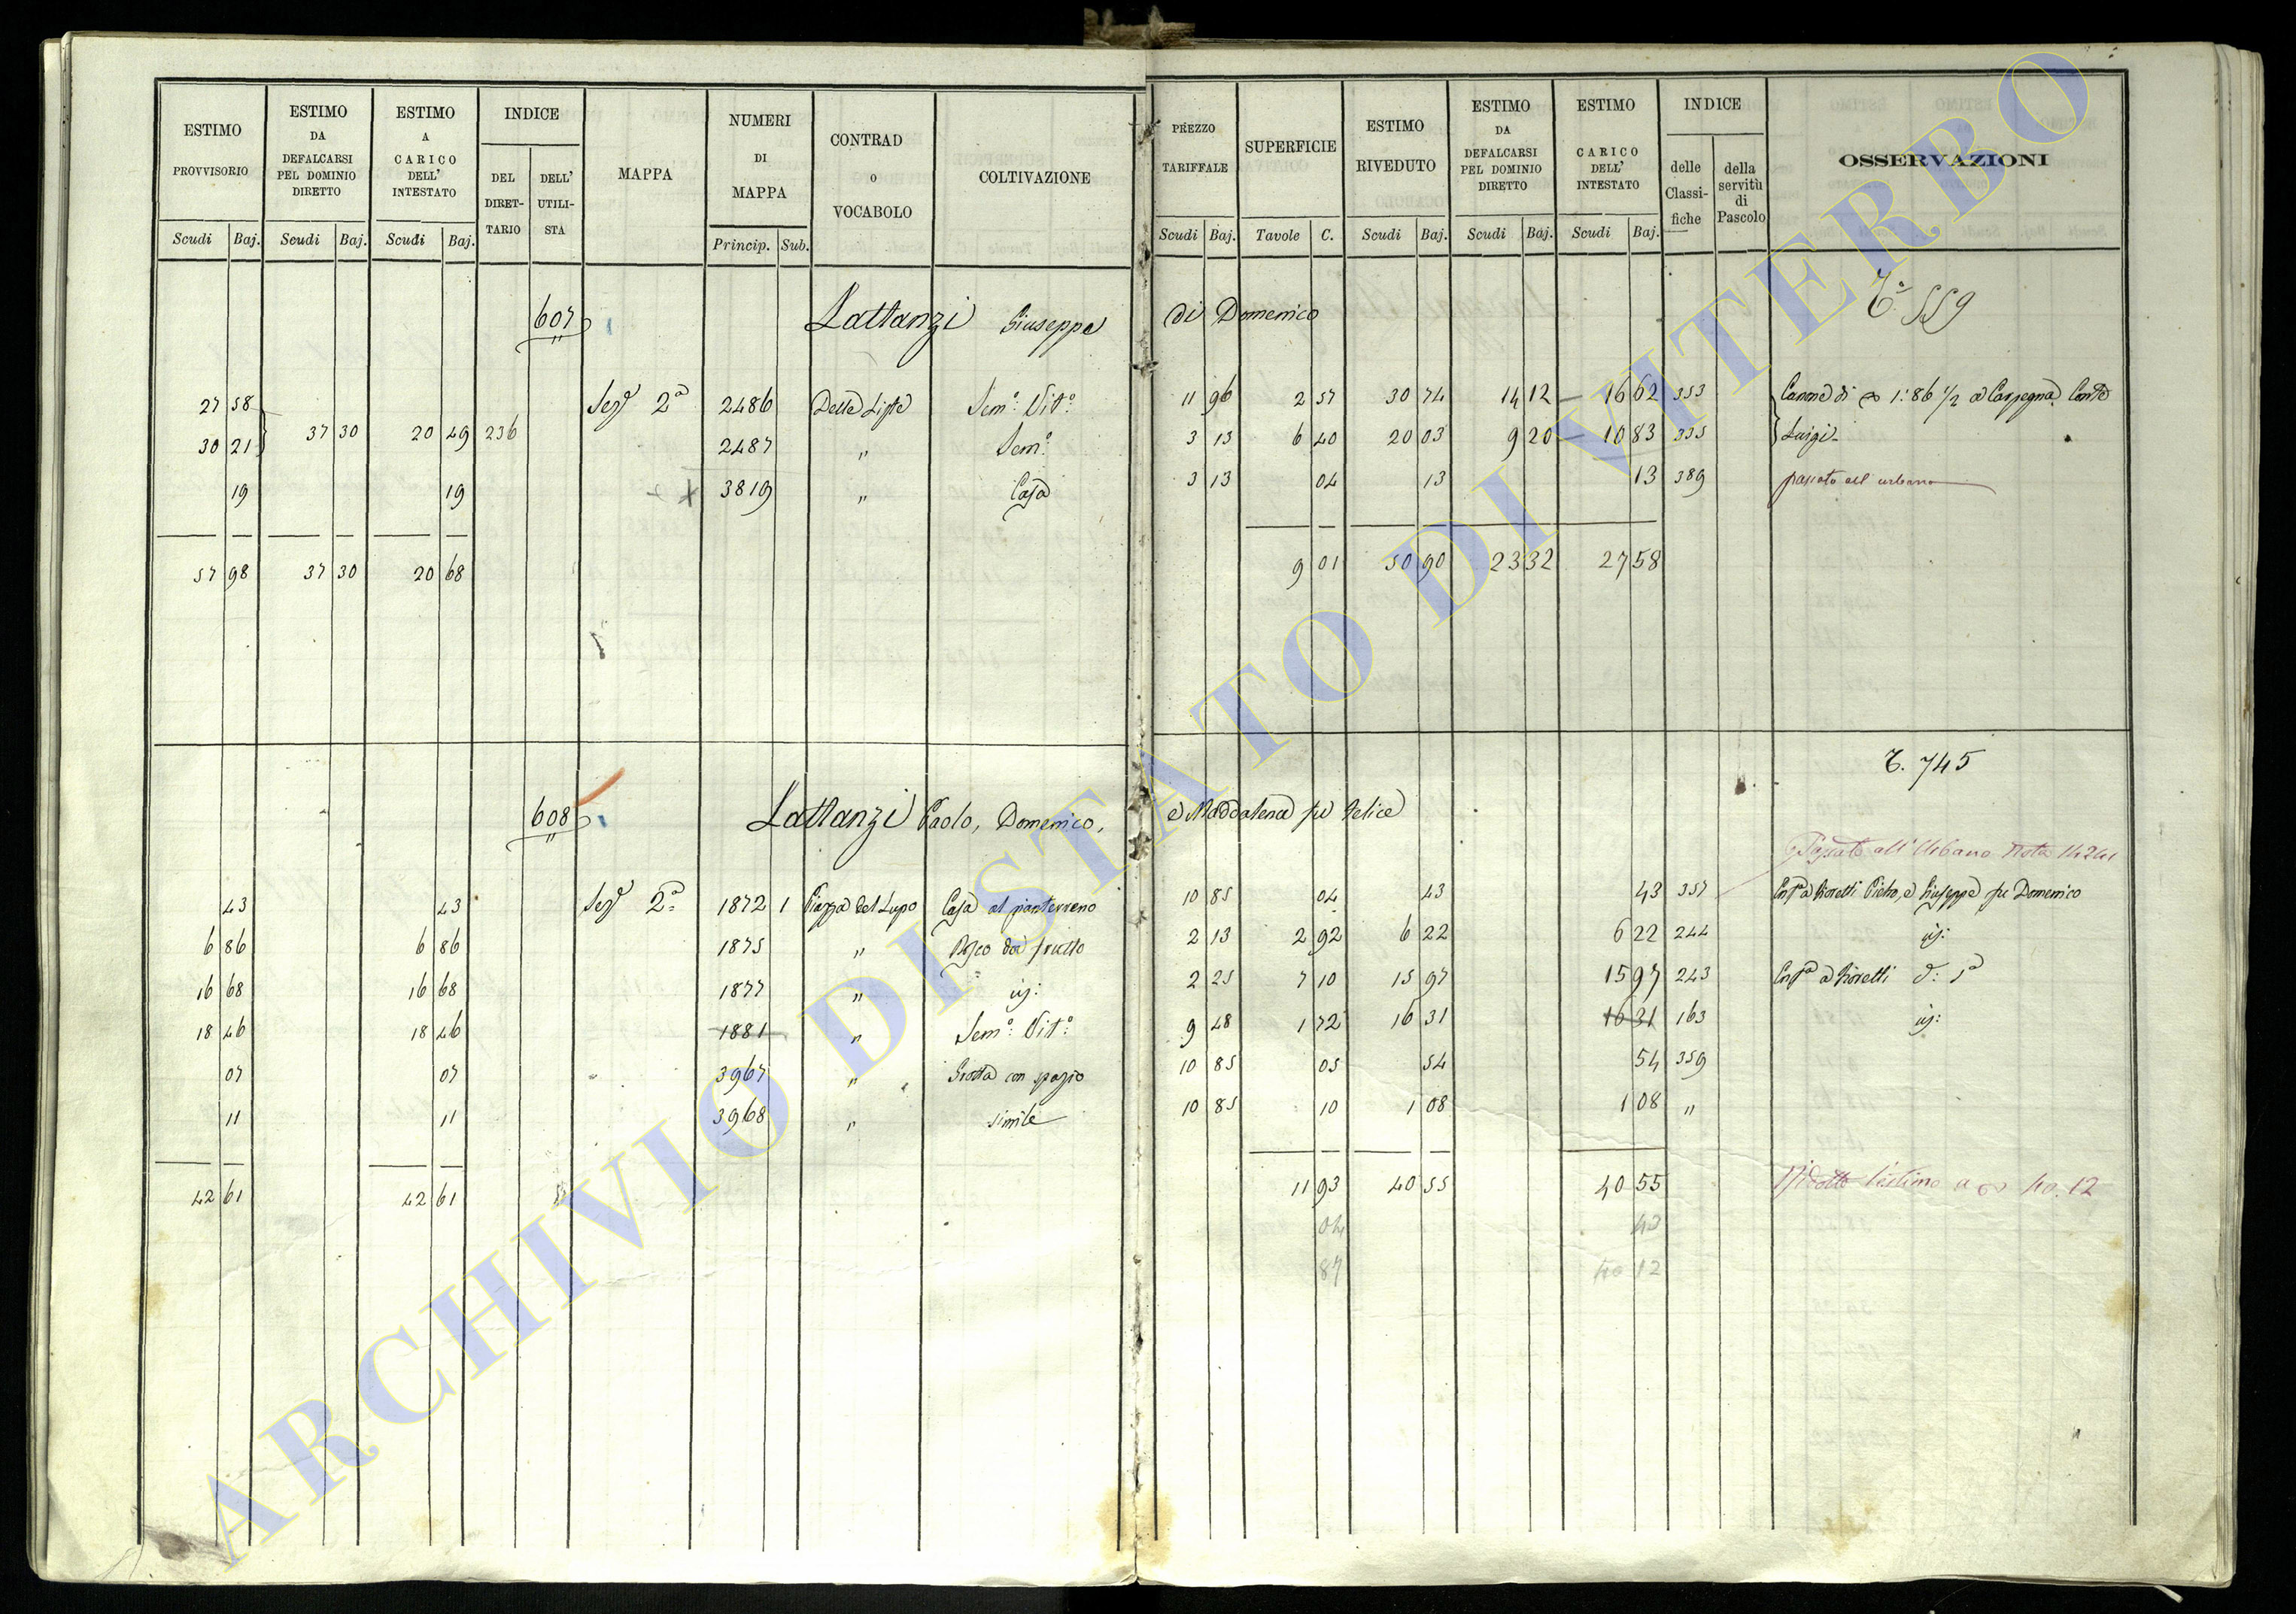 ESTIMO PROVVISORIO | ESTIMO DA DEFALCARSI PEL DOMINIO DIRETTO | ESTIMO A CARICO DELL' INTESTATO | INDICE | MAPPA | NUMERI DI MAPPA | CONTRAD O VOCABOLO | COLTIVAZIONE | PREZZO TARIFFALE | SUPERFICIE | ESTIMO RIVEDUTO | ESTIMO DA DEFALCARSI PEL DOMINIO DIRETTO | ESTIMO A CARICO DELL' INTESTATO | INDICE | OSSERVAZIONI
DEL DIRETTARIO | DELL' UTILISTA | delle Classifiche | della servitù di Pascolo
Scudi Baj. | Scudi Baj. | Scudi Baj. | Princip. Sub. | Scudi Baj. | Tavole C. | Scudi Baj. | Scudi Baj. | Scudi Baj.
607 Lattanzi Giuseppe di Domenico 559
27 58 Sez.e 2a 2486 Sem.o Vit.o 11 96 2 57 30 74 14 12 16 62 353 Canone di 1:86 1/2 a Carpegna Conte
30 21 37 30 20 49 236 2487 " Sem.o 3 13 6 40 20 03 9 20 10 83 355 Luigi
19 19 3819 " Casa 3 13 04 13 13 389 passato all' urbano
57 98 37 30 20 68 9 01 50 90 23 32 27 58
T. 745
608 Lattanzi Paolo, Domenico, e Maddalena fu Felice
Passato all' Urbano Nota
43 43 Sez.e 2a 1872 1 Piazza del Lupo Casa al pianterreno 10 85 04 43 43 357 Pietro, e Giuseppe fu Domenico
6 86 6 86 1875 " da frutto 2 13 2 92 6 22 6 22 244
16 68 16 68 1877 " 2 25 7 10 15 97 15 97 243
18 46 18 46 1881 " Sem.o Vit.o 9 48 1 72 16 31 16 31 163
07 07 3967 " Grotta con spazio 10 85 05 54 54 359
11 11 3968 " simile 10 85 10 1 08 1 08 "
42 61 42 61 11 93 40 55 40 55 Ridotto l'estimo a 40.12
04 43
87 40 12
ARCHIVIO DI STATO DI VITERBO